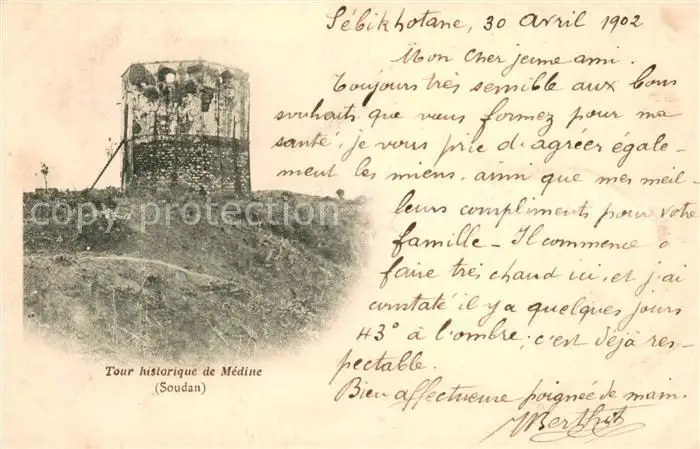 Sébikhotane, 30 Avril 1902
Mon cher jeune ami.
Toujours très sensible aux bons
souhaits que vous formez pour ma
santé, je vous prie d'agréer égale-
ment les miens, ainsi que mes meil-
leurs compliments pour votre
famille - Il commence à
faire très chaud ici, et j'ai
constaté il y a quelques jours
43° à l'ombre; c'est déjà res-
pectable.
Bien affectueuse poignée de main.
Berthot
copy protection
Tour historique de Médine
(Soudan)